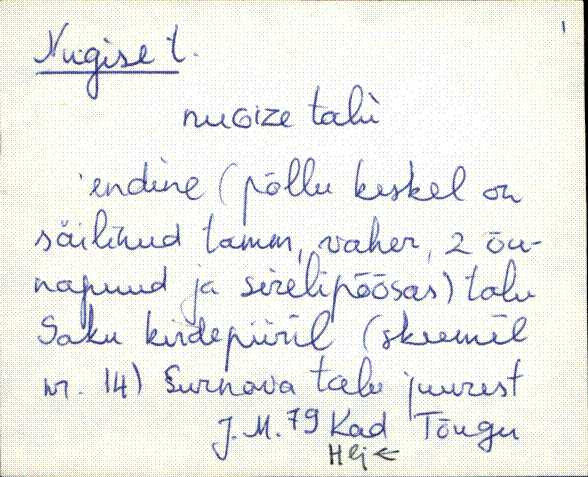 1
Nugise t.
nuGize talù
endine (põllu keskel on
säilinud tamm, vaher, 2 õu-
napuud ja sirelipõõsas) talu
Saku kirdepiiril (skeemil
nr. 14) Surnova talu juurest
J.M. 79 Kad Tõugu
Hlj ←